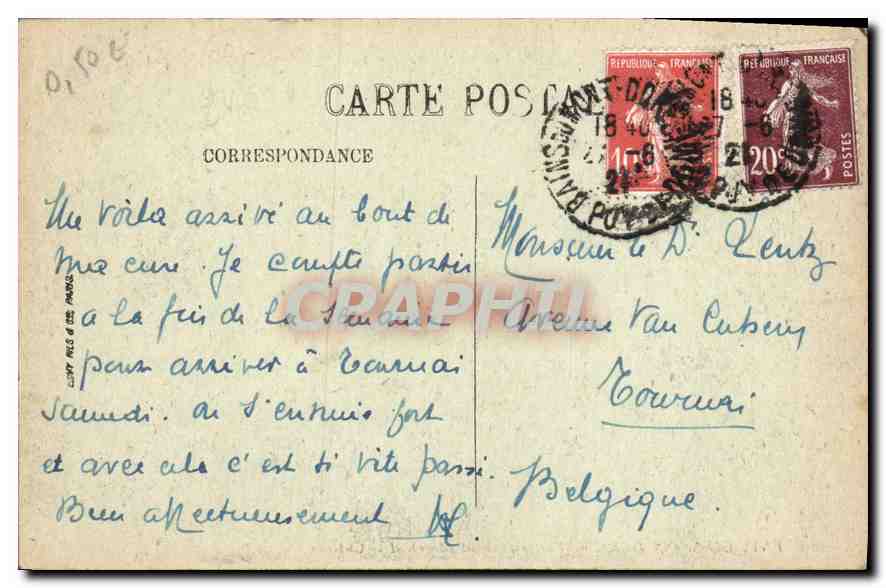 0,50 €
CARTE POSTA
CORRESPONDANCE
REPUBLIQUE FRANÇAISE
10c
REPUBLIQUE FRANÇAISE
20c
POSTES
BAINS DU MONT-DORE
18 40
27 -6
21
PUY-DE-DOME
18 40
27 -6
21
PUY-DE-DOME
Me voila arrivé au bout de
ma cure. Je compte partir
a la fin de la semaine
pour arriver à Tournai
samedi. On s'ennuie fort
et avec cela c'est si vite passé.
Bien affectueusement
Monsieur le Dr Lentz
Avenue Van Cutsem
Tournai
Belgique
LEVY FILS & CIE PARIS
CRAPHIL